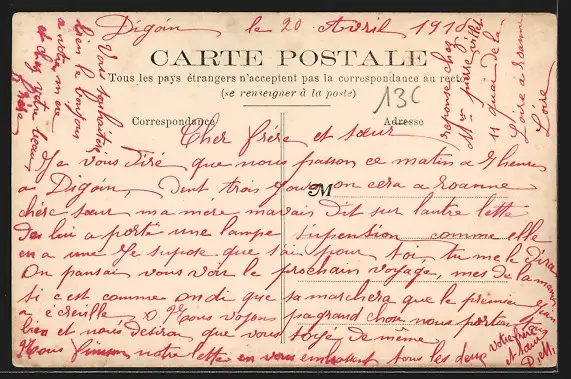 Digoin le 20 Avril 1910
CARTE POSTALE
Tous les pays étrangers n'acceptent pas la correspondance au recto
(se renseigner à la poste)
13C
Correspondance
Adresse
M
Cher frére et sœur
Je vous diré que nous passon ce matin a 9 heures
a Digoin, Dent trois jours on cera a roanne
chére sœur ma mére mavais Dit sur lautre lette
De lui a porté une lampe supension comme elle
en a une Je supose que s'ai pour toi, tu me le Dira
On pansai vous voir le prochain voyage, mes de la maniere
si cest comme on di que sa marchera que le premier Juin
a écreille. Nous voyons pa grand chose nous porton
bien et nous desiron que vous soyé de même
Nous finison notre lette en vous embrassant tous les deux
votre frére et sœur
D. M.
reponse chez
Mr pierre villet
11 quai de la
Loire a roanne
Loire
Vous souhaiterez
bien le bonjour
a votre
et chez votre beau
frére